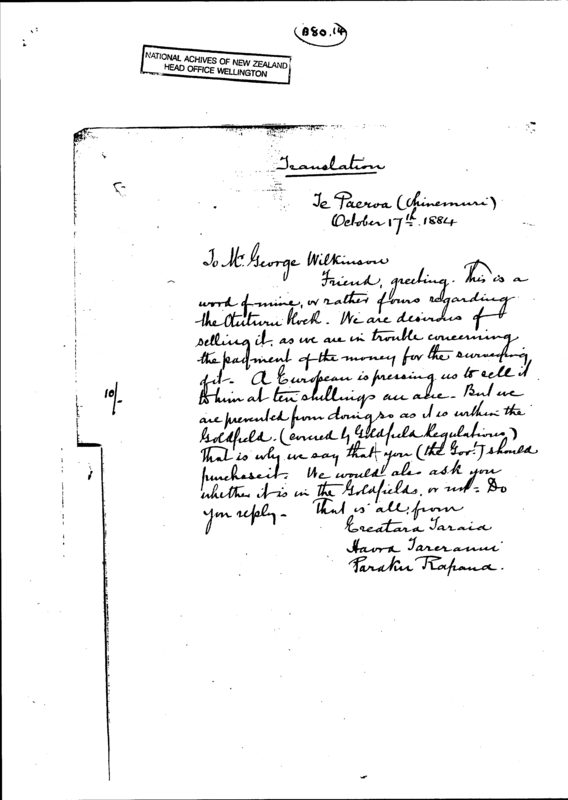 B80.14
NATIONAL ACHIVES OF NEW ZEALAND
HEAD OFFICE WELLINGTON
Translation
Te Paeroa (Ohinemuri)
October 17th. 1884
To Mr. George Wilkinson
Friend, greeting. This is a
word of mine, or rather of ours regarding
the block. We are desirous of
selling it, as we are in trouble concerning
the payment of the money for the surveying
of it - A European is pressing us to sell it
to him at ten shillings an acre - But we
10/-
are prevented from doing so as it is within the
Goldfield. ( by Goldfield Regulations)
That is why we say that you (the Govt.) should
purchase it. We would also ask you
whether it is in the Goldfields, or not - Do
you reply - That is all, from
Taraia
Haora Tareranui
Paraku Rapana.